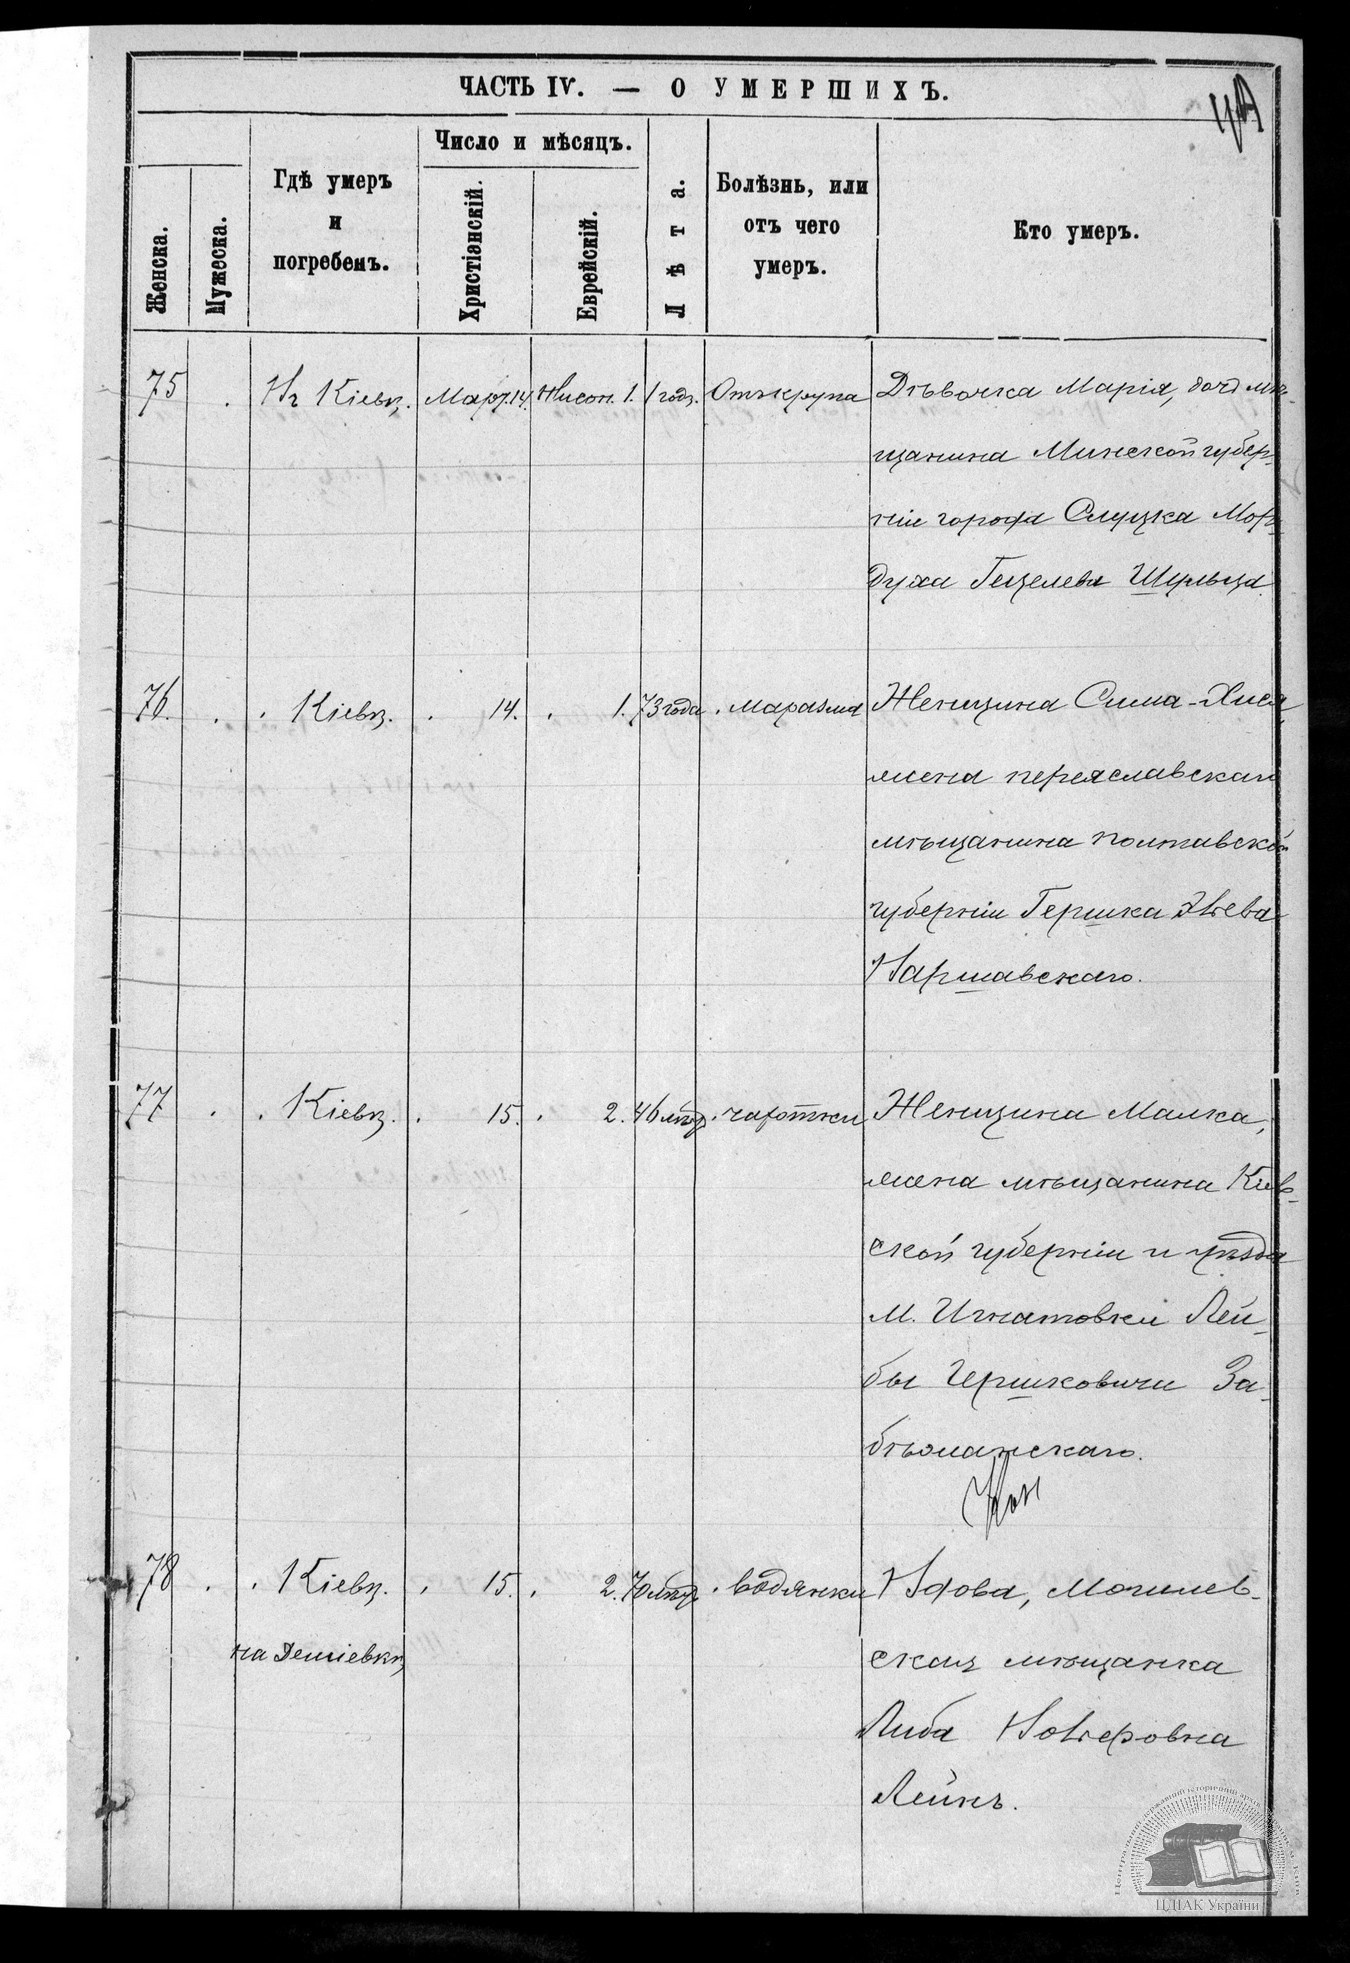 ЧАСТЬ IV. — О УМЕРШИХЪ.
Женска.
Мужеска.
Гдѣ умеръ
и
погребенъ.
Число и мѣсяцъ.
Христіанскій.
Еврейскій.
Лѣта.
Болѣзнь, или
отъ чего
умеръ.
Кто умеръ.
75 . Въ Кіевѣ. Март.14. Нисон. 1. 1 годъ. Отъ крупа Дѣвочка Марія, дочь мѣ-
щанина Минской губер-
ніи города Слуцка Мор-
духа Гецелева Шульца.
76. . . Кіевѣ. . 14. . 1. 73 года . маразма Женщина Сима-Хися,
жена переяславскаго
мѣщанина полтавской
губерніи Гершка Зѣева
Варшавскаго.
77 . . Кіевѣ. . 15. . 2. 46 лѣтъ . чахотки Женщина Малка,
жена мѣщанина Кіев-
ской губерніи и уѣзда
м. Игнатовки Лей-
бы Гершковича За-
бѣжанскаго.
78 . . Кіевѣ. . 15. . 2. 70 лѣтъ . водянки Вдова, Могилев-
на Деміевкѣ
ская мѣщанка
Либа
Лейнъ.
ЦДІАК України